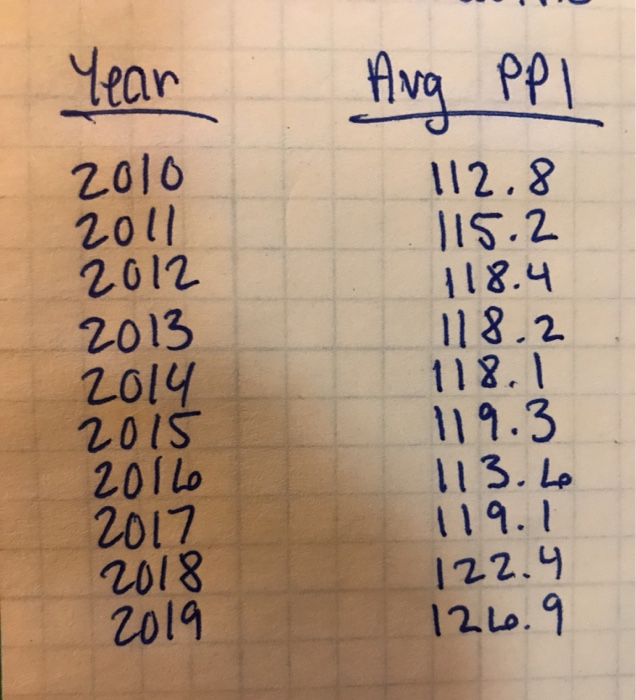 Year Avg PPI
2010 112.8
2011 115.2
2012 118.4
2013 118.2
2014 118.1
2015 119.3
2016 113.6
2017 119.1
2018 122.4
2019 126.9